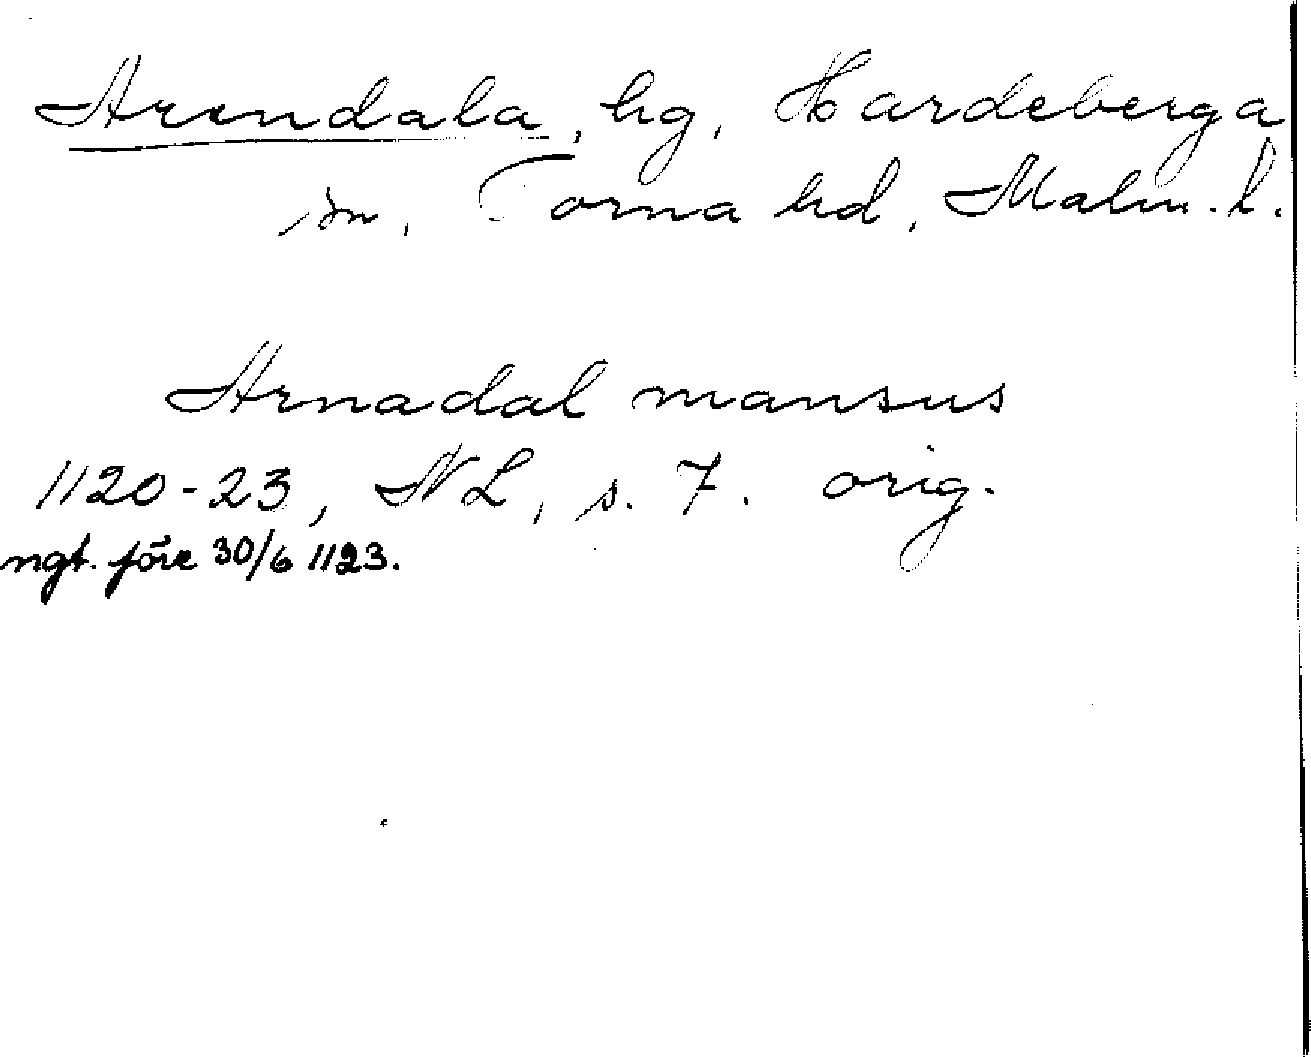 Arendala, hg, Hardeberga
sn, Torna hd, Malm. l.
Arnadal mansus
1120-23, NL, s. 7. orig.
ngt. före 30/6 1123.